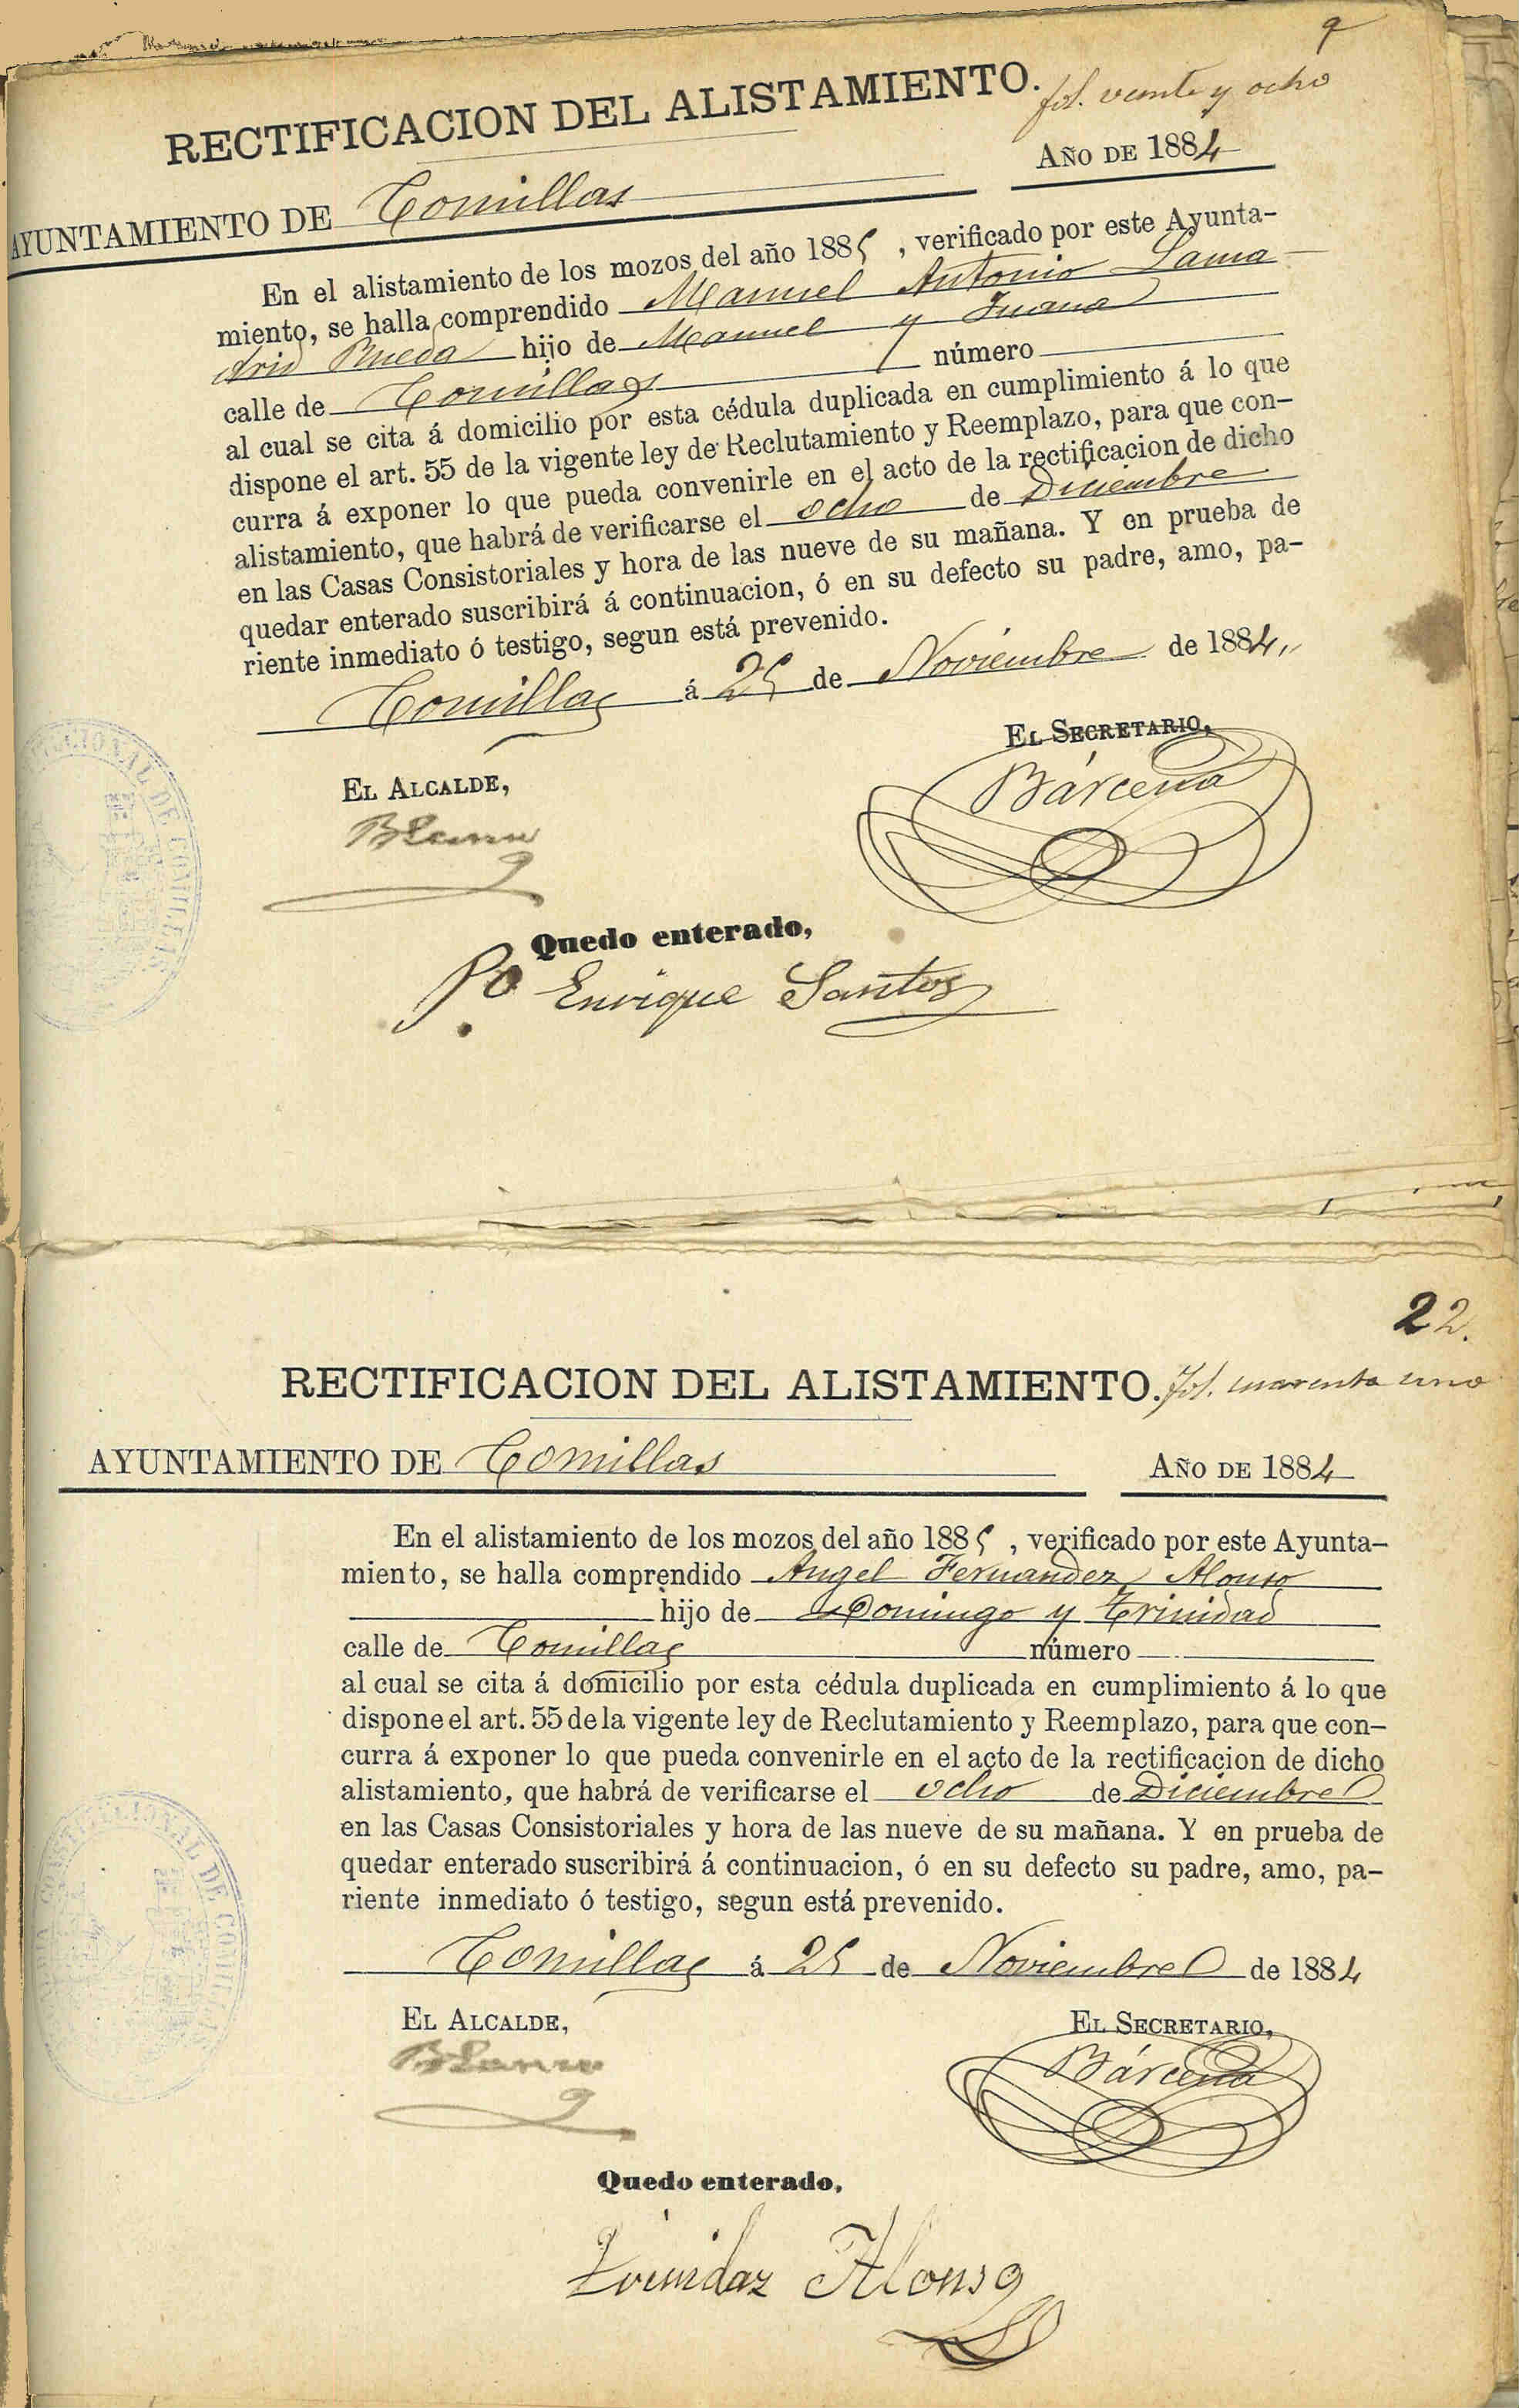 9
RECTIFICACION DEL ALISTAMIENTO. fol. veinte y ocho
AÑO DE 1884
AYUNTAMIENTO DE Comillas
En el alistamiento de los mozos del año 1885, verificado por este Ayunta-
miento, se halla comprendido Manuel Antonio Lama
drid Rueda hijo de Manuel y Juana
calle de Comillas número
al cual se cita á domicilio por esta cédula duplicada en cumplimiento á lo que
dispone el art. 55 de la vigente ley de Reclutamiento y Reemplazo, para que con-
curra á exponer lo que pueda convenirle en el acto de la rectificacion de dicho
alistamiento, que habrá de verificarse el ocho de Diciembre
en las Casas Consistoriales y hora de las nueve de su mañana. Y en prueba de
quedar enterado suscribirá á continuacion, ó en su defecto su padre, amo, pa-
riente inmediato ó testigo, segun está prevenido.
Comillas á 25 de Noviembre de 1884
EL ALCALDE,
EL SECRETARIO,
Bárcena
Quedo enterado,
PO Enrique Santos
22.
RECTIFICACION DEL ALISTAMIENTO. fol. cuarenta uno
AYUNTAMIENTO DE Comillas AÑO DE 1884
En el alistamiento de los mozos del año 1885, verificado por este Ayunta-
miento, se halla comprendido Angel Fernandez Alonso
hijo de Domingo y Trinidad
calle de Comillas número
al cual se cita á domicilio por esta cédula duplicada en cumplimiento á lo que
dispone el art. 55 de la vigente ley de Reclutamiento y Reemplazo, para que con-
curra á exponer lo que pueda convenirle en el acto de la rectificacion de dicho
alistamiento, que habrá de verificarse el ocho de Diciembre
en las Casas Consistoriales y hora de las nueve de su mañana. Y en prueba de
quedar enterado suscribirá á continuacion, ó en su defecto su padre, amo, pa-
riente inmediato ó testigo, segun está prevenido.
Comillas á 25 de Noviembre de 1884
EL ALCALDE,
EL SECRETARIO,
Bárcena
Quedo enterado,
Trinidaz Alonso